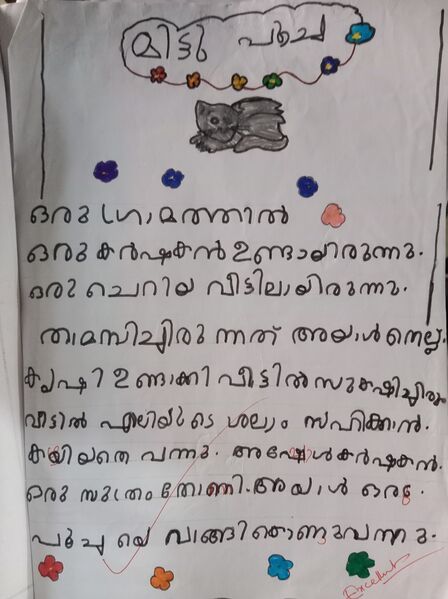 മിട്ടു പൂച്ച
ഒരു ഗ്രാമത്തിൽ
ഒരു കർഷകൻ ഉണ്ടായിരുന്നു.
ഒരു ചെറിയ വീട്ടിലായിരുന്നു.
താമസിച്ചിരുന്നത് അയാൾ നെല്ല്
കൃഷി ഉണ്ടാക്കി വീട്ടിൽ സൂക്ഷിച്ചിരുന്നു
വീട്ടിൽ എലിയുടെ ശല്യം സഹിക്കാൻ.
കയിയതെ വന്നു. അപ്പോൾ കർഷകൻ.
ഒരു സൂത്രം തോന്നി. അയാൾ ഒരു
പൂച്ചയെ വാങ്ങികൊണ്ടുവന്നു.
Excellent